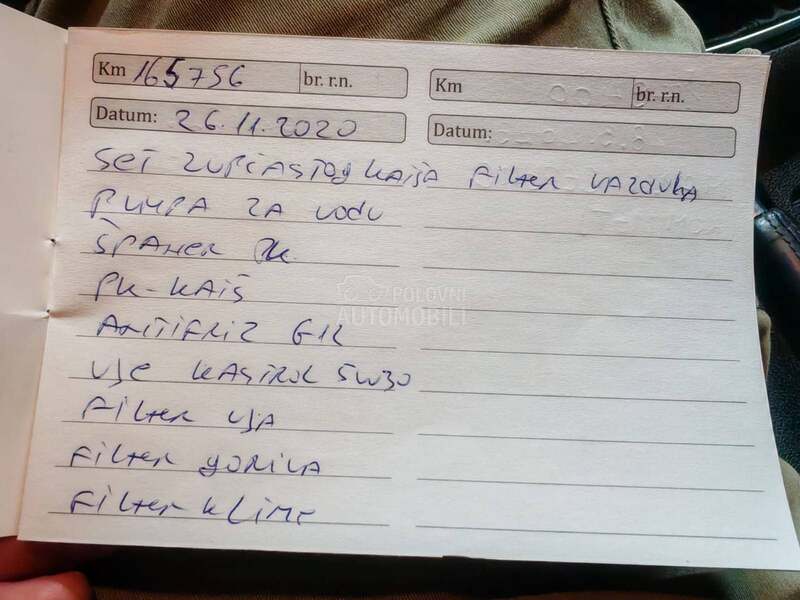 Km 165756 br. r.n.
Datum: 26.11.2020
SET ZUPČASTOG KAIŠA FILTER VAZDUHA
PUMPA ZA VODU
ŠPANER PK.
PK-KAIŠ
ANTIFRIZ G12
ULJE KASTROL 5W30
FILTER ULJA
FILTER GORIVA
FILTER KLIME
Km br. r.n.
Datum:
POLOVNI
AUTOMOBILI